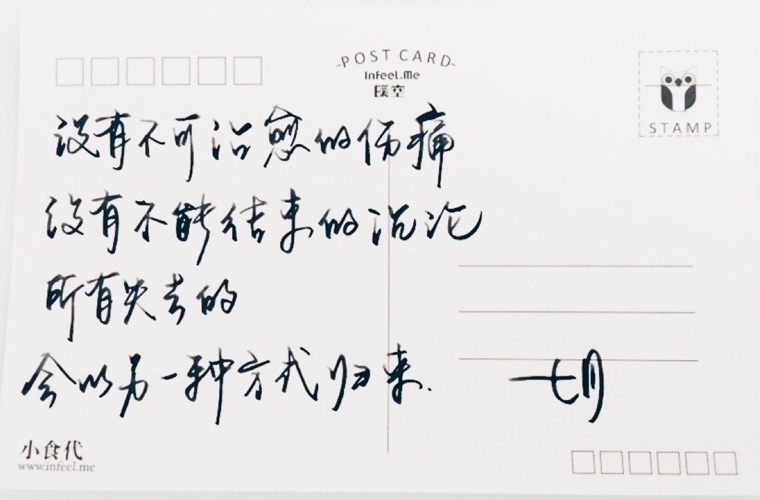 POST CARD
Infeel.Me
暖空
STAMP
没有不可治愈的伤痛
没有不能结束的沉沦
所有失去的
会以另一种方式归来.
七月
小食代
www.infeel.me